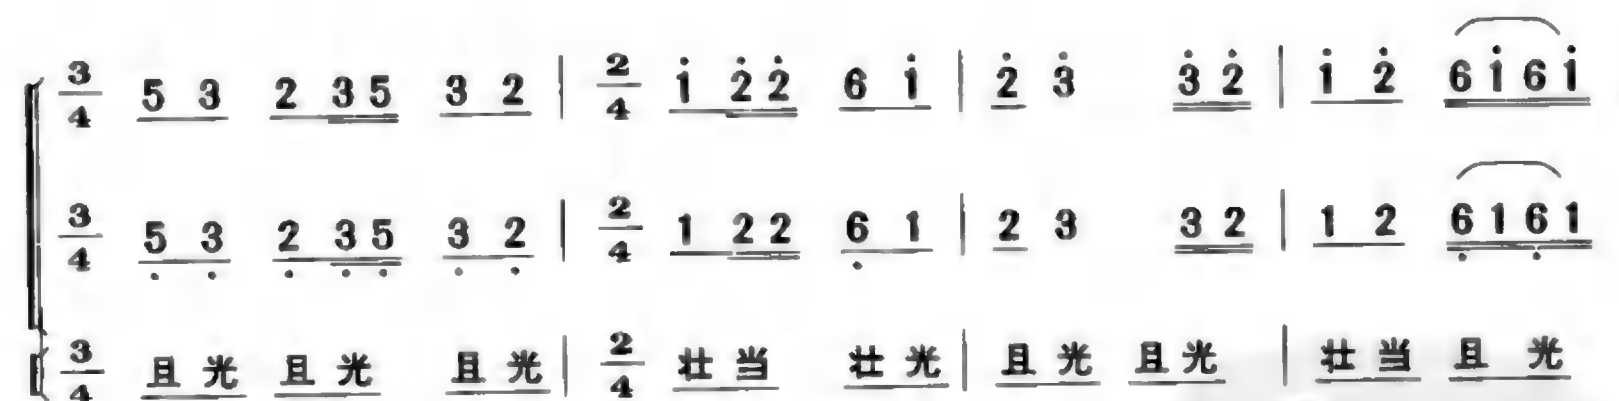 3/4 5 3 2 3 5 3 2 | 2/4 1̇ 2̇ 2̇ 6 1̇ | 2̇ 3̇ 3̇ 2̇ | 1̇ 2̇ 6 1̇ 6 1̇
3/4 5̣ 3̣ 2̣ 3̣ 5̣ 3̣ 2̣ | 2/4 1 2 2 6̣ 1 | 2 3 3 2 | 1 2 6̣ 1 6̣ 1
3/4 且 光 且 光 且 光 | 2/4 壮 当 壮 光 | 且 光 且 光 | 壮 当 且 光